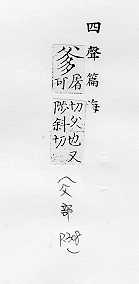 四聲篇海
爹 屠可
切父也又
陟斜切
(父部
P208)